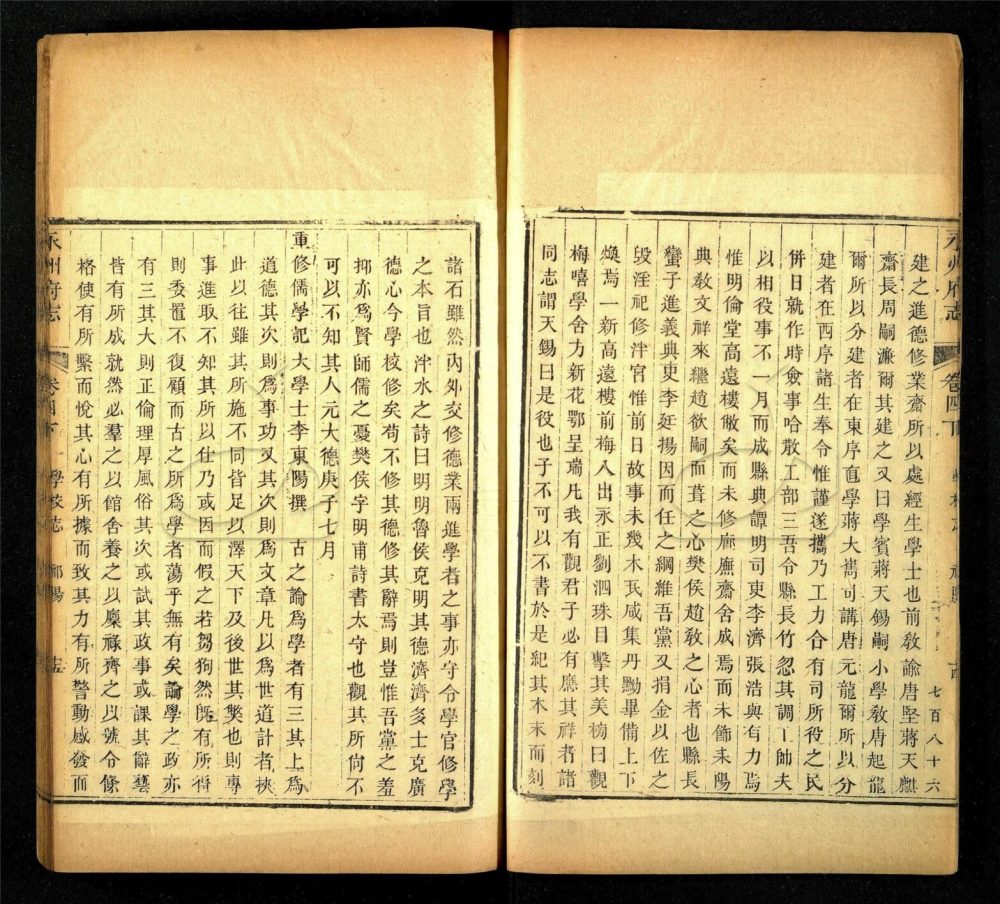 永州府志
卷四下
七百八十六
建之進德修業齋所以處經生學士也前敎諭唐堅蔣天麒
齋長周嗣濂爾其建之又曰學賓蔣天錫嗣小學敎唐起龍
爾所以分建者在東序直學蔣大雋可講唐元龍爾所以分
建者在西序諸生奉令惟謹遂攜乃工力合有司所役之民
併日就作時僉事哈散工部三吾令縣長竹忽其調工帥夫
以相役事不一月而成縣典譚明司吏李濟張浩與有力焉
惟明倫堂高遠樓敝矣而未修廊廡齋舍成焉而未飾耒陽
典敎文祥來繼趙欲嗣而葺之心樊侯趙敎之心者也縣長
蠻子進義典吏李廷揚因而任之綱維吾黨又捐金以佐之
毀淫祀修泮宮惟前日故事未幾木瓦咸集丹黝畢備上下
煥焉一新高遠樓前梅人出永正劉泗珠目擊其美楊曰觀
梅嘻學舍方新花鄂呈瑞凡我有觀君子必有應其祥者諸
同志謂天錫曰是役也子不可以不書於是紀其本末而刻
諸石雖然內外交修德業兩進學者之事亦守令學官修學
之本言也泮水之詩曰明明魯侯克明其德濟濟多士克廣
德心今學校修矣苟不修其德修其辭焉則豈惟吾黨之羞
抑亦爲賢師儒之憂樊侯字明甫詩書太守也觀其所尙不
可以不知其人元大德庚子七月
重修儒學記 大學士李東陽撰 古之論爲學者有三其上爲
道德其次則爲事功又其次則爲文章凡以爲世道計者挾
此以往雖其所施不同皆足以澤天下及後世其獘也則專
事進取不知其所以仕乃或因而假之若芻狗然旣有所得
則委置不復顧而古之所爲學者蕩乎無有矣論學之政亦
有三其大則正倫理厚風俗其次或試其政事或課其辭藝
皆有所成就然必羣之以館舍養之以廩祿齊之以號令條
格使有所繫而悅其心有所據而致其力有所警動感發而
永州府志
卷四下
學校志
祁陽